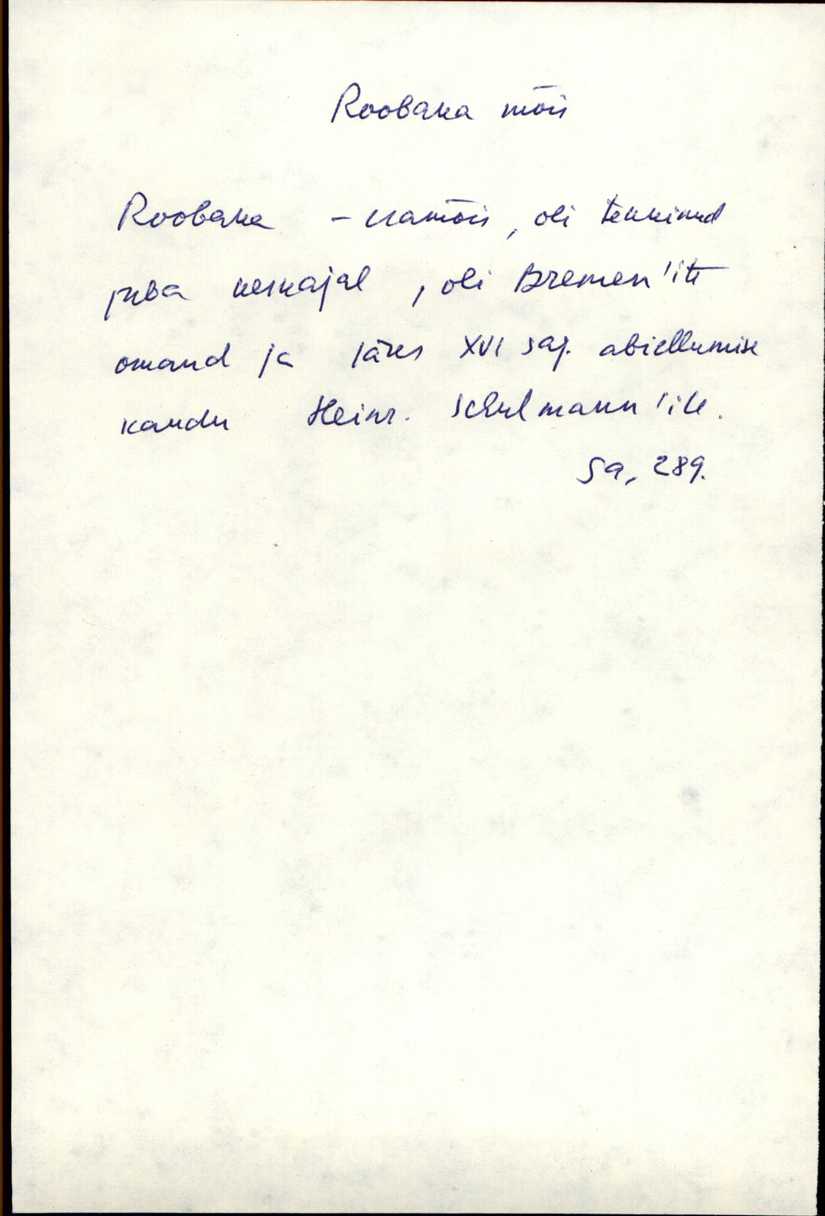 Roobaka mõis
Roobaka - ramõis, oli tekkinud
juba keskajal, oli Bremen'ite
omand ja läks XVI saj. abiellumise
kaudu Heinr. Schulmann'ile.
Sa, 289.